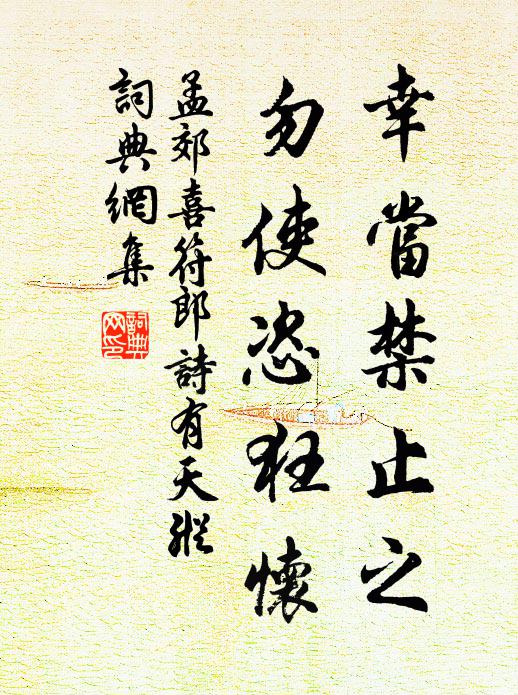 幸當禁止之
勿使恣狂懷
孟郊喜符郎詩有天縱
詞典網集
詞典網印